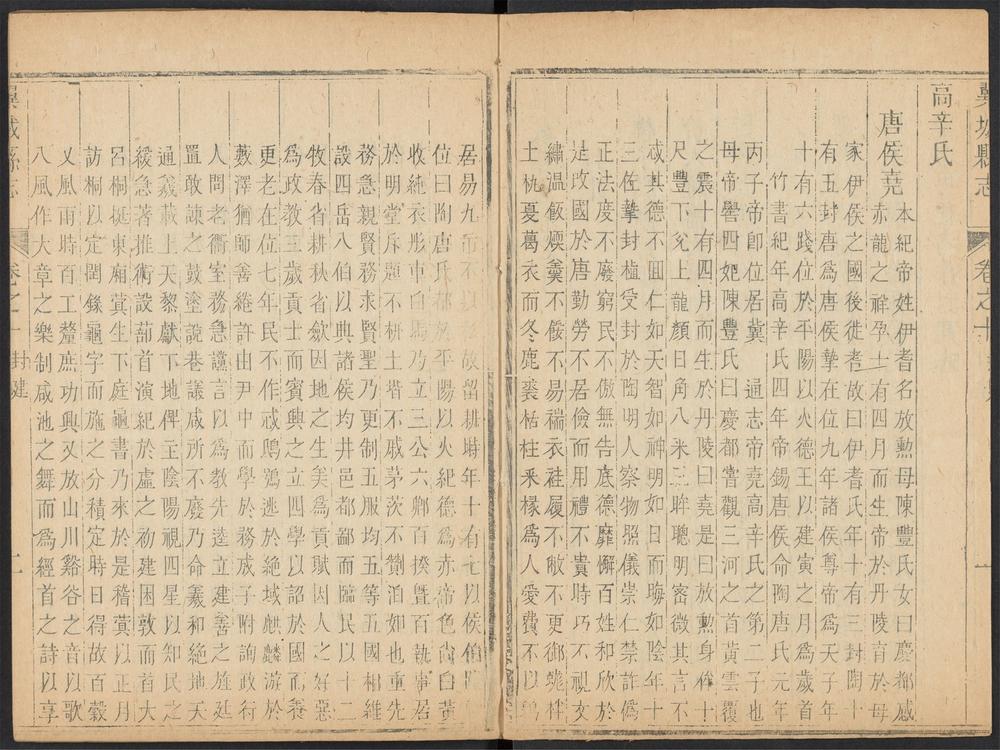 縣志
卷之十
高辛氏
唐侯堯
本紀帝姓伊耆名放勳母陳豐氏女曰慶都感
赤龍之祥孕十有四月而生帝於丹陵育於母
家伊侯之國後徙耆故曰伊耆氏年十有三封陶十
有五封唐為唐侯摯在位九年諸侯尊帝為天子年
十有六踐位於平陽以火德王以建寅之月為歲首
竹書紀年高辛氏四年帝錫唐侯命陶唐氏元年
丙子帝卽位居冀
通志帝堯高辛氏之第二子也
母帝嚳四妃陳豐氏曰慶都嘗觀三河之首黃雲覆
之震十有四月而生於丹陵曰堯是曰放勳身侔十
尺豐下兊上龍顏日角八米三眸聰明密微其言不
忒其德不回仁如天智如神明如日而晦如陰年十
三佐摯封植受封於陶明人察物照儀崇仁禁詐偽
正法度不廢窮民不傲無告底德靡懈百姓和欣於
是改國於唐勤勞不居儉而用禮不貴時巧不視文
繡溫飯煗羹不餕不易褍衣絓履不敝不更
土杌夏葛衣而冬鹿裘栝柱釆椽為人愛費不以
居易九
故留耕時年十有七以侯伯
位曰陶唐氏都於平陽以火紀德為赤帝色尚白黃
收純衣彤車白馬乃立三公六鄉百揆暨百執事居
於明堂斥題不枅土堦不戚茅茨不翦泊如也重先
務急親賢務求賢聖乃更制五服均五等五國相維
設四岳八伯以典諸侯均井邑都鄙而臨民以十二
牧春省耕秋省斂因地之生美為貢賦因人之好惡
為政教三歲貢士而賓興之立四學以詔於國而養
更老在位七年民不作忒鴟鴞逃於絕域麒麟游於
藪澤猶師善綣許由尹中而學於務成子附詢政於
人問老衢室務急讜言以為教先逵立建善之旌廷
置敢諫之鼓塗說巷議咸所不廢乃命羲和絕地天
通義載上天黎獻下地俾主陰陽視四星以知民之
緩急著推術設蔀首演紀於虛之初建困敦而首大
呂桐挺東廂蓂生下庭龜書乃來於是稽蓂以正月
訪桐以定閏錄龜字而施之分積定時日得故百穀
乂風雨時百工釐庶功興乂放山川谿谷之音以歌
八風作大章之樂制咸池之舞而為經首之詩以享
縣志
卷之十
封建
二